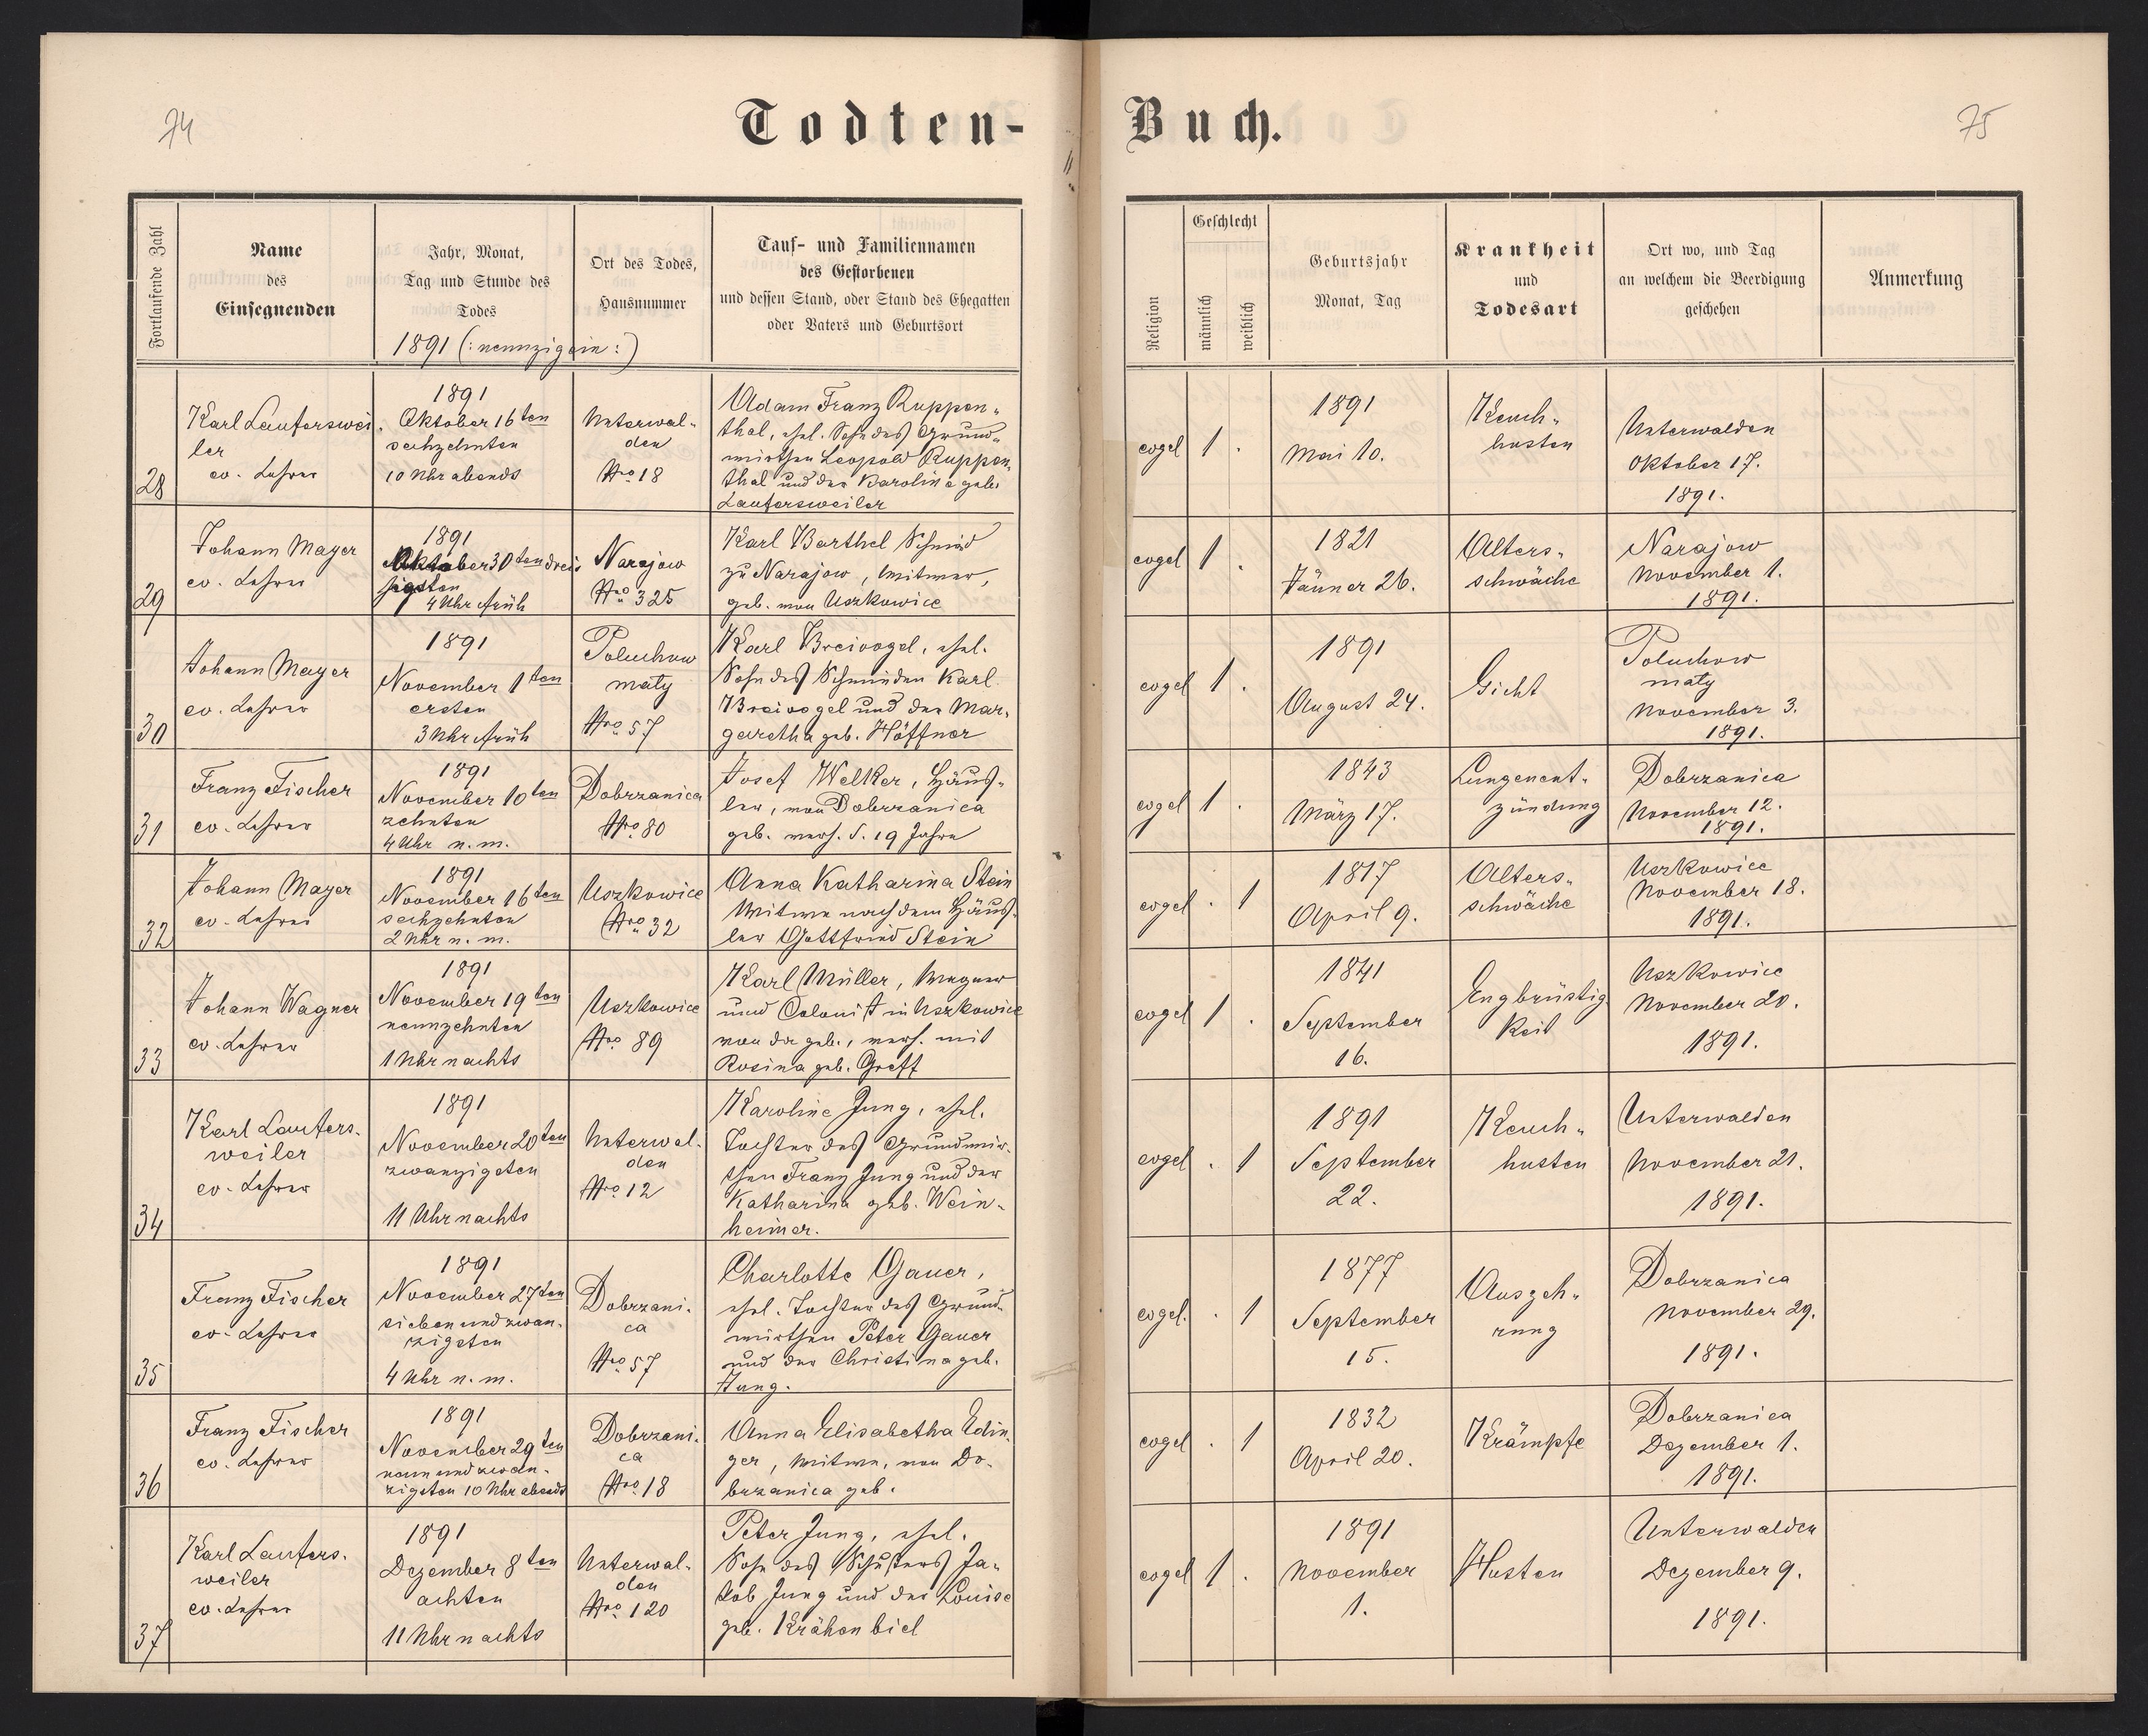 74
Todten-
Buch.
75
Fortlaufende Zahl
Name
des
Einsegnenden
Jahr, Monat,
Tag und Stunde des
Todes
1891 (: neunzigein :)
Ort des Todes,
Hausnummer
Tauf- und Familiennamen
des Gestorbenen
und dessen Stand, oder Stand des Ehegatten
oder Vaters und Geburtsort
Religion
Geschlecht
männlich
weiblich
Geburtsjahr
Monat, Tag
Krankheit
und
Todesart
Ort wo, und Tag
an welchem die Beerdigung
geschehen
Anmerkung
28
Karl Lauterswei-
ler
ev. Lehrer
1891
Oktober 16ten
sechzehnten
10 Uhr abends
Unterwal-
den
Nro 18
Adam Franz Ruppen-
thal, ehel. Sohn des Grund-
wirthen Leopold Ruppen-
thal und der Karolina geb.
Lautersweiler
evgel
1 .
1891
Mai 10.
Keuch-
husten
Unterwalden
Oktober 17.
1891.
29
Johann Mayer
ev. Lehrer
1891
Oktober 30ten dreis-
sigsten
4 Uhr früh
Narajow
Nro 325
Karl Barthel Schmid
zu Narajow, Witwer,
geb. von Uszkowice
evgel
1 .
1821
Jänner 26.
Alters-
schwäche
Narajow
November 1.
1891.
30
Johann Mayer
ev. Lehrer
1891
November 1ten
ersten
3 Uhr früh
Poluchow
maly
Nro 57
Karl Breivogel, ehel.
Sohn des Schmieden Karl
Breivogel und der Mar-
garetha geb. Höffner
evgel
1 .
1891
August 24.
Gicht
Poluchow
maly
November 3.
1891.
31
Franz Fischer
ev. Lehrer
1891
November 10ten
zehnten
4 Uhr n. m.
Dobrzanica
Nro 80
Josef Welker, Häus-
ler, von Dobrzanica
geb. verh. s. 19 Jahre
evgel
1 .
1843
März 17.
Lungenent-
zündung
Dobrzanica
November 12.
1891.
32
Johann Mayer
ev. Lehrer
1891
November 16ten
sechzehnten
2 Uhr n. m.
Uszkowice
Nro 32
Anna Katharina Stein
Witwe nach dem Häus-
ler Gottfried Stein
evgel
. 1
1817
April 9.
Alters-
schwäche
Uszkowice
November 18.
1891.
33
Johann Wagner
ev. Lehrer
1891
November 19ten
neunzehnten
1 Uhr nachts
Uszkowice
Nro 89
Karl Müller, Wagner
und Colonist in Uszkowice
von da geb., verh. mit
Rosina geb. Greff
evgel
1 .
1841
September
16.
Engbrüstig-
keit
Uszkowice
November 20.
1891.
34
Karl Lauters-
weiler
ev. Lehrer
1891
November 20ten
zwanzigsten
11 Uhr nachts
Unterwal-
den
Nro 12
Karoline Jung, ehel.
Tochter des Grundwir-
then Franz Jung und der
Katharina geb. Wein-
heimer.
evgel
. 1
1891
September
22.
Keuch-
husten
Unterwalden
November 21.
1891.
35
Franz Fischer
ev. Lehrer
1891
November 27ten
siebenundzwan-
zigsten
4 Uhr n. m.
Dobrzani-
ca
Nro 57
Charlotte Gauer,
ehel. Tochter des Grund-
wirthen Peter Gauer
und der Christina geb.
Jung.
evgel.
. 1
1877
September
15.
Auszeh-
rung
Dobrzanica
November 29.
1891.
36
Franz Fischer
ev. Lehrer
1891
November 29ten
neunundzwan-
zigsten 10 Uhr abends
Dobrzani-
ca
Nro 18
Anna Elisabetha Edin-
ger, Witwe, von Do-
brzanica geb.
evgel
. 1
1832
April 20.
Krämpfe
Dobrzanica
Dezember 1.
1891.
37
Karl Lauters-
weiler
ev. Lehrer
1891
Dezember 8ten
achten
11 Uhr nachts
Unterwal-
den
Nro 120
Peter Jung, ehel.
Sohn des Schusters Ja-
kob Jung und der Louise
geb. Krähenbiel
evgel
1 .
1891
November
1.
Husten
Unterwalden
Dezember 9.
1891.